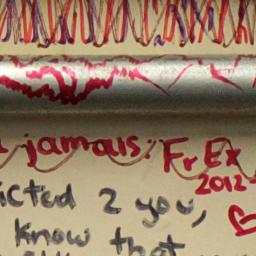 jamais: Fr Ex
2012-
icted 2 you,
know that